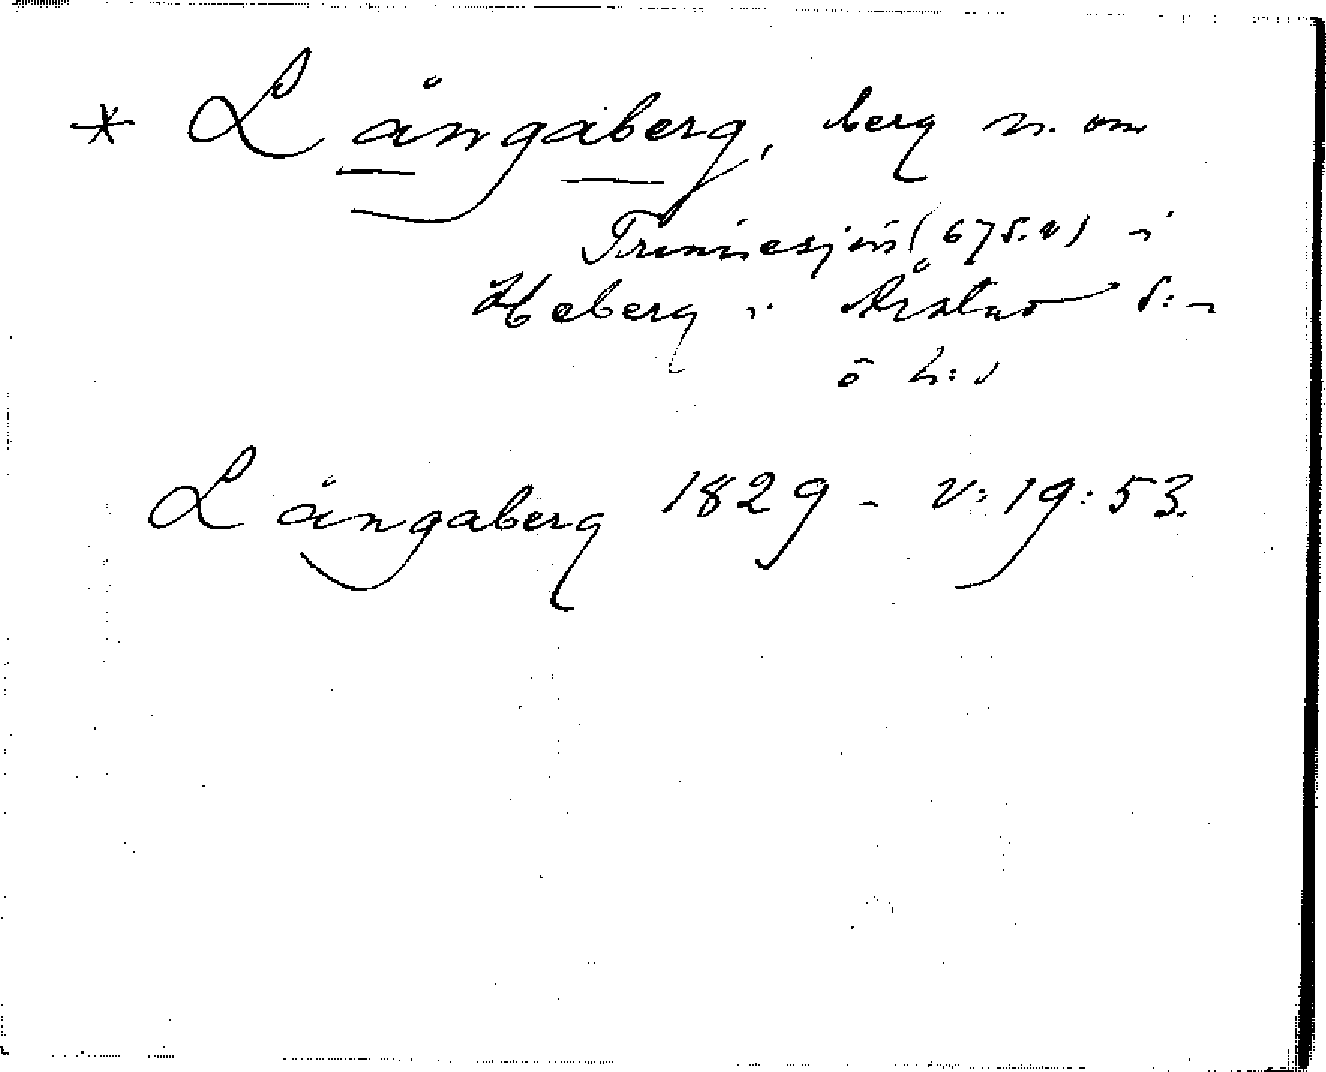 * Långaberg, berg n. om
(675.v) i
Heberg i Årstad s:n
o h:d
Långaberg 1829 - V:19:53.